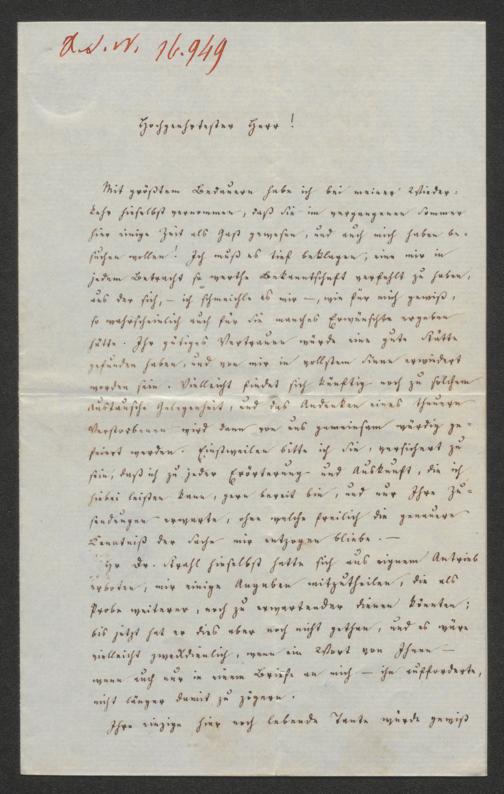 H.I.N. 16.949
Hochgeehrtester Herr!
Mit größtem Bedauern habe ich bei meiner Wieder-
kehr hieselbst vernommen, daß Sie im vergangenen Sommer
hier einige Zeit als Gast gewesen, und auch mich haben be-
suchen wollen! Ich muß es tief beklagen, eine mir in
jedem Betracht so werthe Bekanntschaft verfehlt zu haben,
aus der sich, — ich schmeichle es mir —, wie für mich gewiß,
so wahrscheinlich auch für Sie manches Erwünschte ergeben
hätte. Ihr gütiges Vertrauen würde eine gute Stätte
gefunden haben, und von mir in vollstem Sinne erwiedert
worden sein. Vielleicht findet sich künftig noch zu solchem
Austausche Gelegenheit, und das Andenken eines theuern
Verstorbenen wird dann von uns gemeinsam würdig ge-
feiert werden. Einstweilen bitte ich Sie, versichert zu
sein, daß ich zu jeder Erörterung und Auskunft, die ich
hiebei leisten kann, gern bereit bin, und nur Ihre Zu-
sendungen erwarte, ohne welche freilich die genauere
Kenntniß der Sache mir entzogen bliebe. —
Hr Dr. hieselbst hatte sich aus eignem Antrieb
erboten, mir einige Angaben mitzutheilen, die als
Probe weiterer, noch zu erwartender dienen könnten;
bis jetzt hat er dies aber noch nicht gethan, und es wäre
vielleicht zweckdienlich, wenn ein Wort von Ihnen —
wenn auch nur in einem Briefe an mich — ihn aufforderte,
nicht länger damit zu zögern.
Ihre einzige hier noch lebende Tante würde gewiß